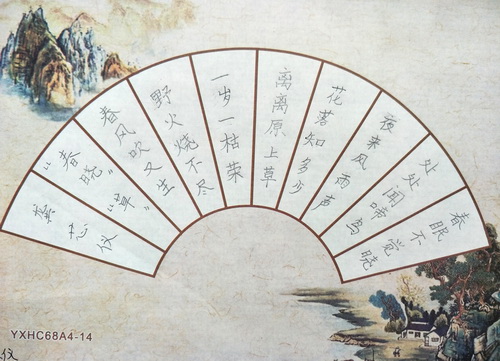 春眠不觉晓
处处闻啼鸟
夜来风雨声
花落知多少
离离原上草
一岁一枯荣
野火烧不尽
春风吹又生
“春晓”“草”
仪
YXHC68A4-14
仪